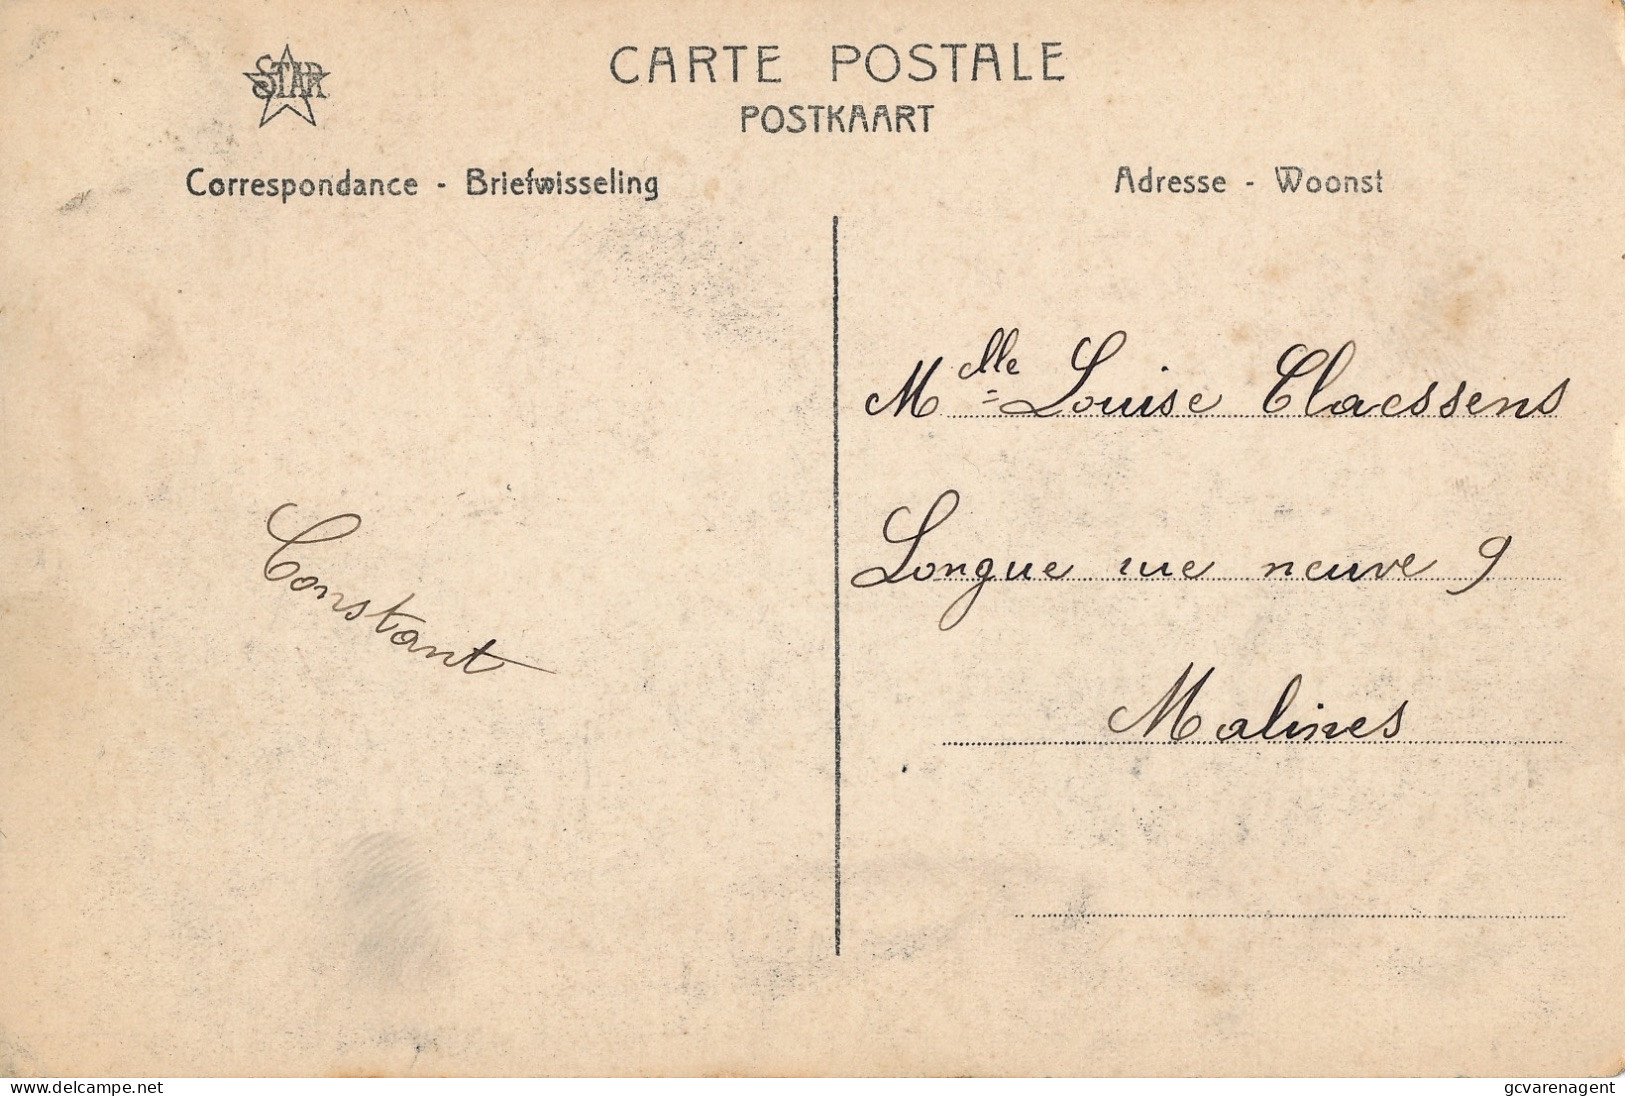 STAR
CARTE POSTALE
POSTKAART
Correspondance - Briefwisseling
Adresse - Woonst
Mlle Louise Claessens
Longue rue neuve 9
Malines
Constant
www.delcampe.net
gcvarenagent